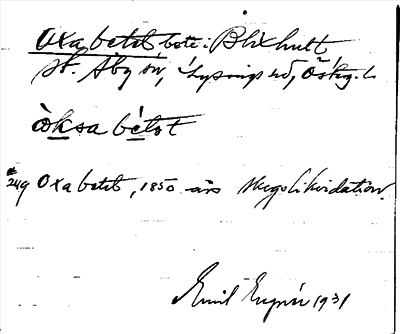 Oxabetet, bete: Blixhult
St. Åby sn, Lysings hd, Östg. l.
òksa bétet
249 Oxabetet, 1850 års Skogslikvidation.
Emil 1931